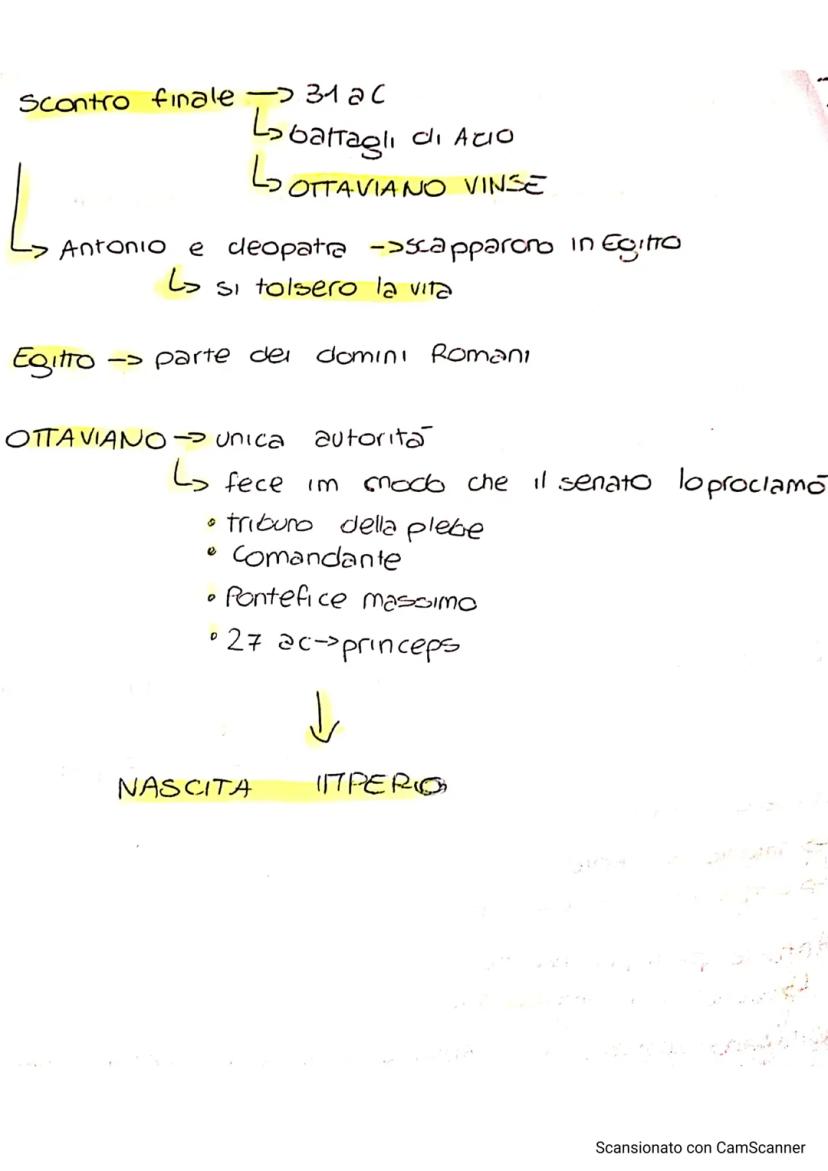 scontro finale -> 31 a C
↳ battagli di Azio
↳ OTTAVIANO VINSE
↳ Antonio e cleopatra -> scapparono in Egitto
↳ si tolsero la vita
Egitto -> parte dei domini Romani
OTTAVIANO -> unica autorità
↳ fece im modo che il senato lo proclamò
• tribuno della plebe
• Comandante
• Pontefice massimo
• 27 ac -> princeps
↓
NASCITA IMPERO
Scansionato con CamScanner